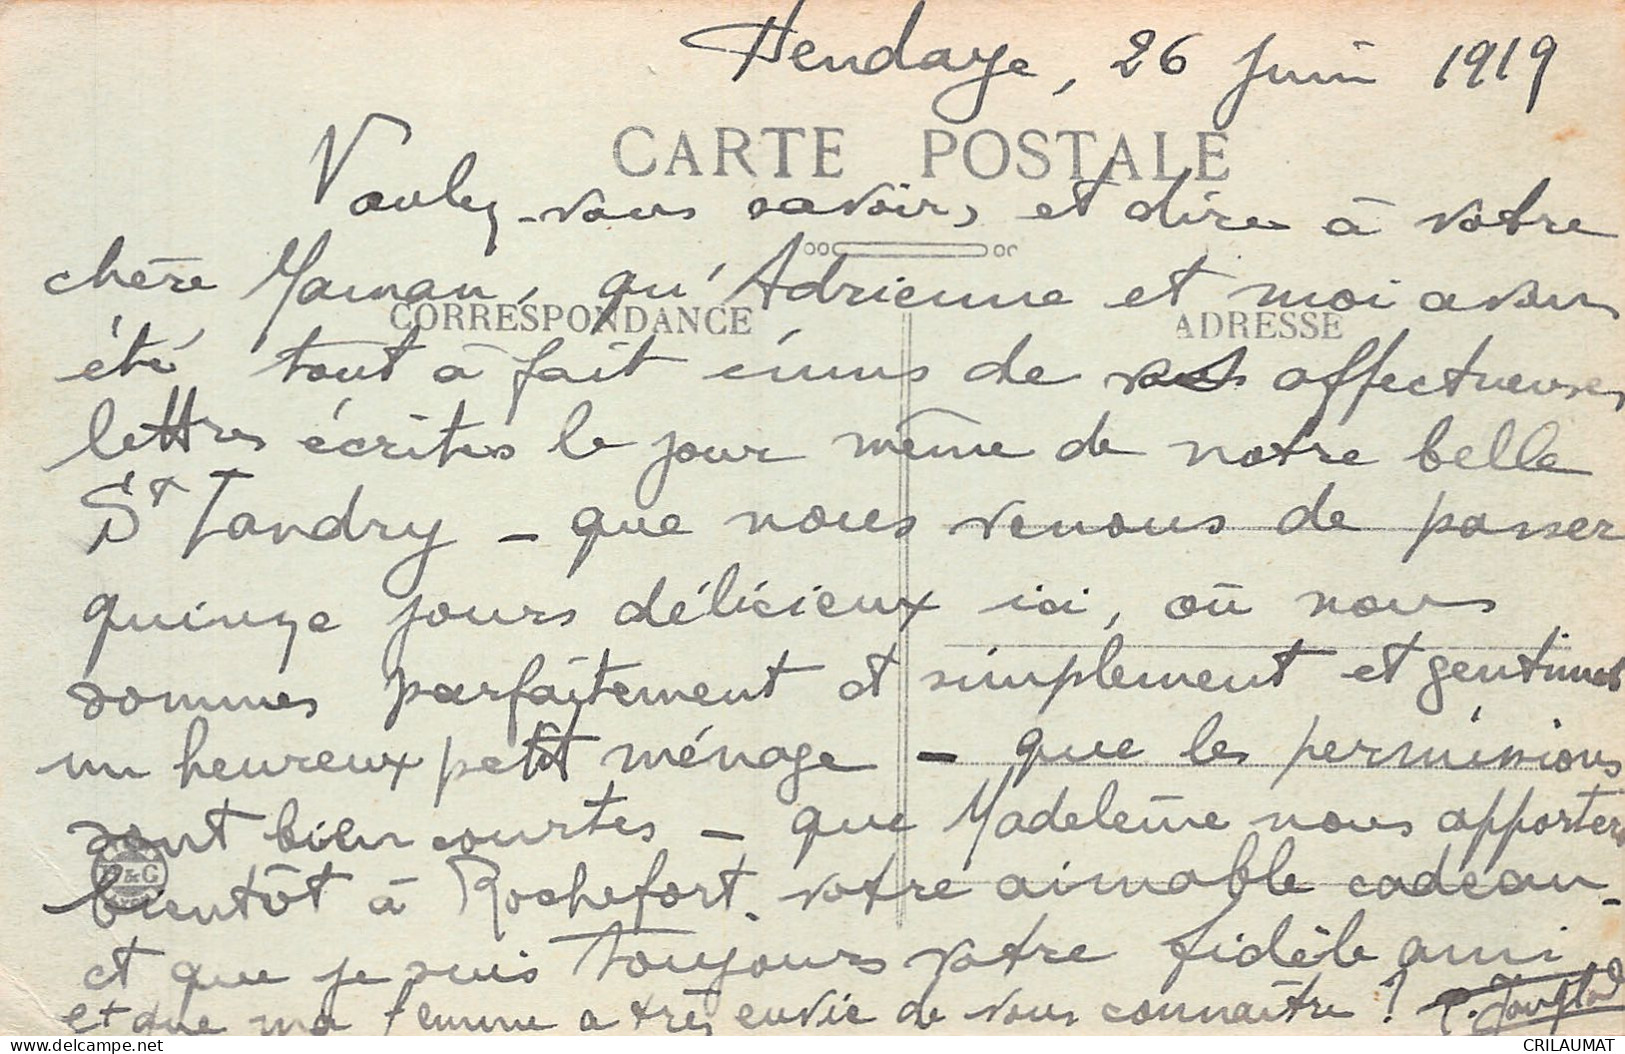 Hendaye, 26 Juin 1919
CARTE POSTALE
Voulez-vous savoir, et dire à votre
chère Maman, qu'Adrienne et moi avons
CORRESPONDANCE
ADRESSE
été tout à fait émus de vos affectueuses
lettres écrites le jour même de notre belle
St Landry - que nous venons de passer
quinze jours délicieux ici, où nous
sommes parfaitement et simplement et gentiment
un heureux petit ménage - que les permissions
sont bien courtes - que Madeleine nous apportera
B&G
bientôt à Rochefort votre aimable cadeau -
et que je suis toujours votre fidèle ami
et que ma femme a très envie de vous connaître !
CRILAUMAT